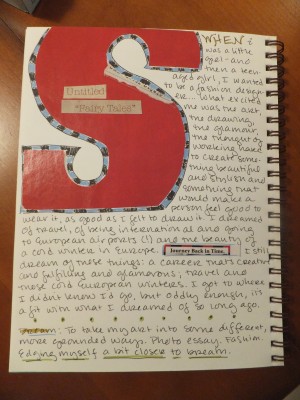 WHEN I
was a little
girl - and
then a teen-
aged girl, I wanted
to be a fashion design-
er... What excited
me was the art,
the drawing,
the glamour,
the thought of
working hard
to create some-
thing beautiful
and stylish and
something that
would make a
person feel good to
Untitled
"Fairy Tales"
wear it, as good as I felt to draw it. I dreamed
of travel, of being international and going
to European airports (!!) and the beauty of
a cold winter in Europe. Journey Back In Time I still
dream of these things: a career that's creative
and fulfilling and glamorous; travel and
those cold European winters. I got to where
I didn't know I'd go, but oddly enough, it's
a fit with what I dreamed of so long ago.
Dream: To take my art into some different,
more grounded ways. Photo essay. Fashion.
Edging myself a bit closer to